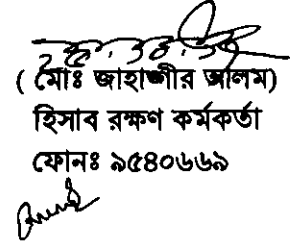 ( মোঃ জাহাঙ্গীর আলম)
হিসাব রক্ষণ কর্মকর্তা
ফোনঃ ৯৫৪০৬৬৯